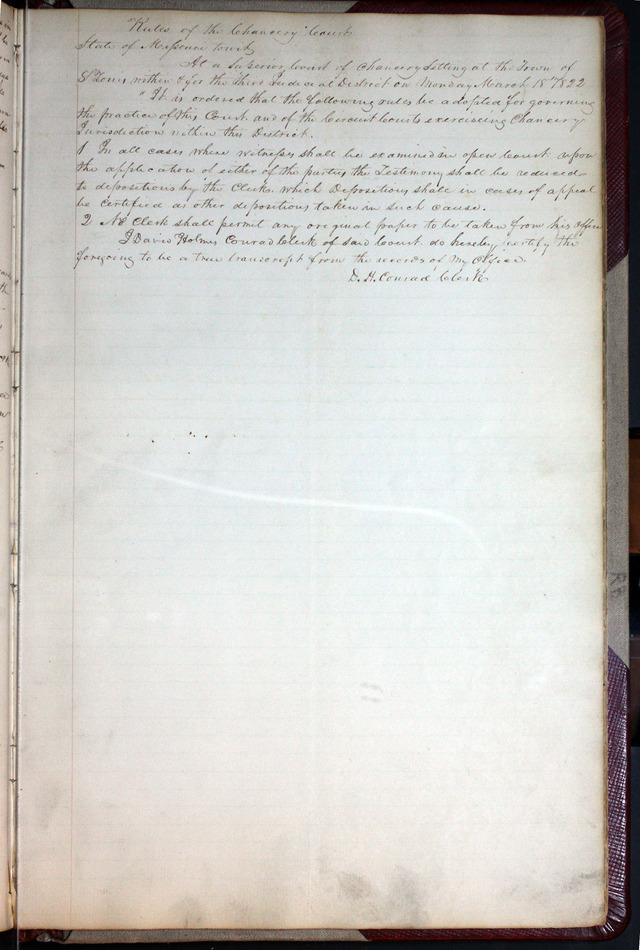 "Rules of the Chancery Court
State of Missouri towit
At a Superior Court of Chancery Sitting at the Town of
St Louis within & for the third Judicial District on Monday March 18th 1822
"It is ordered that the following rules be adopted for governing
the practice of this Court and of the Circuit Courts exercising Chancery
Jurisdiction within this District.
1 In all cases where witnesses shall be examined in open Court upon
the application of either of the parties the Testimony shall be reduced
to depositions by the Clerks which Depositions shall in cases of appeal
be certified as other depositions taken in such cause.
2 No Clerk shall permit any original paper to be taken from his Office
I David Holmes Conrad Clerk of said Court do hereby certify the
foregoing to be a true transcript from the records of my Office.
D. H. Conrad, Clerk
RB